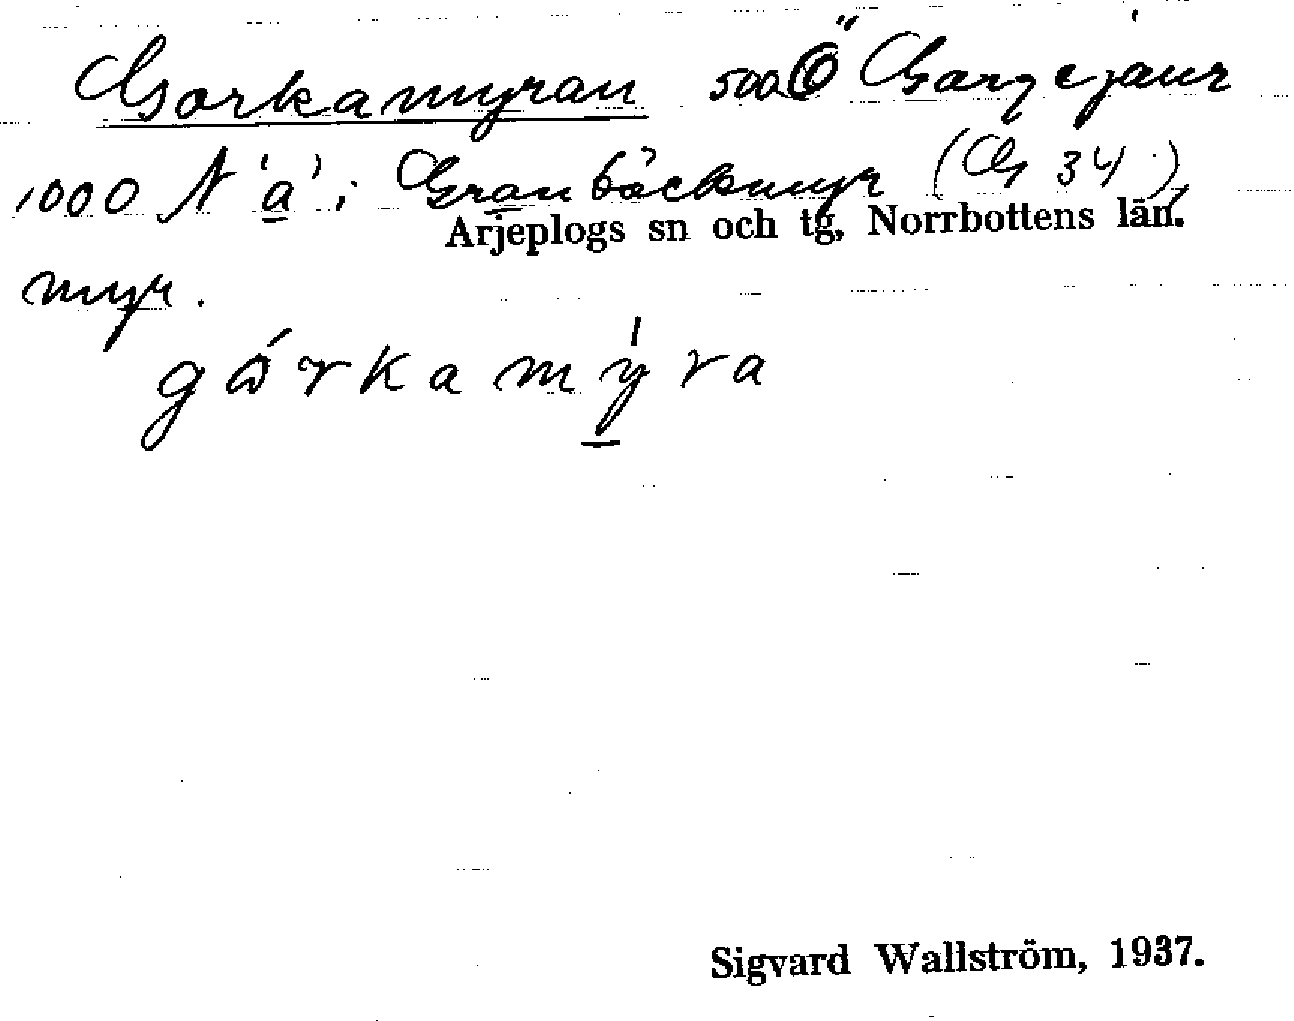 Gorkamyran 500 Ö Gargejaur
1000 N 'a' i Granbäckmyr (G 34),
Arjeplogs sn och tg, Norrbottens län.
myr.
górkamýra
Sigvard Wallström, 1937.